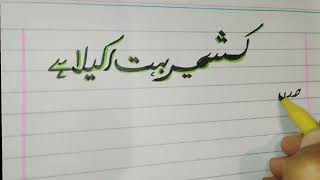 کشمیر بہت اکیلا ہے